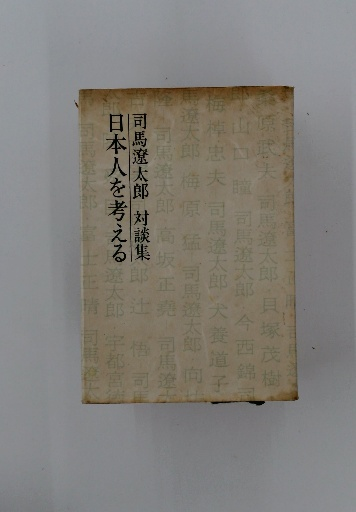 司馬遼太郎 対談集
日本人を考える
司馬遼太郎 貝塚茂樹
山口 瞳 司馬遼太郎 今西錦司
梅棹忠夫 司馬遼太郎 犬養道子
遼太郎 梅原 猛 司馬遼太郎 向
司馬遼太郎 高坂正堯 司馬遼太
郎 辻 悟 司馬
司馬遼太郎 宇都宮
司馬遼太郎 富士正晴 司馬遼太